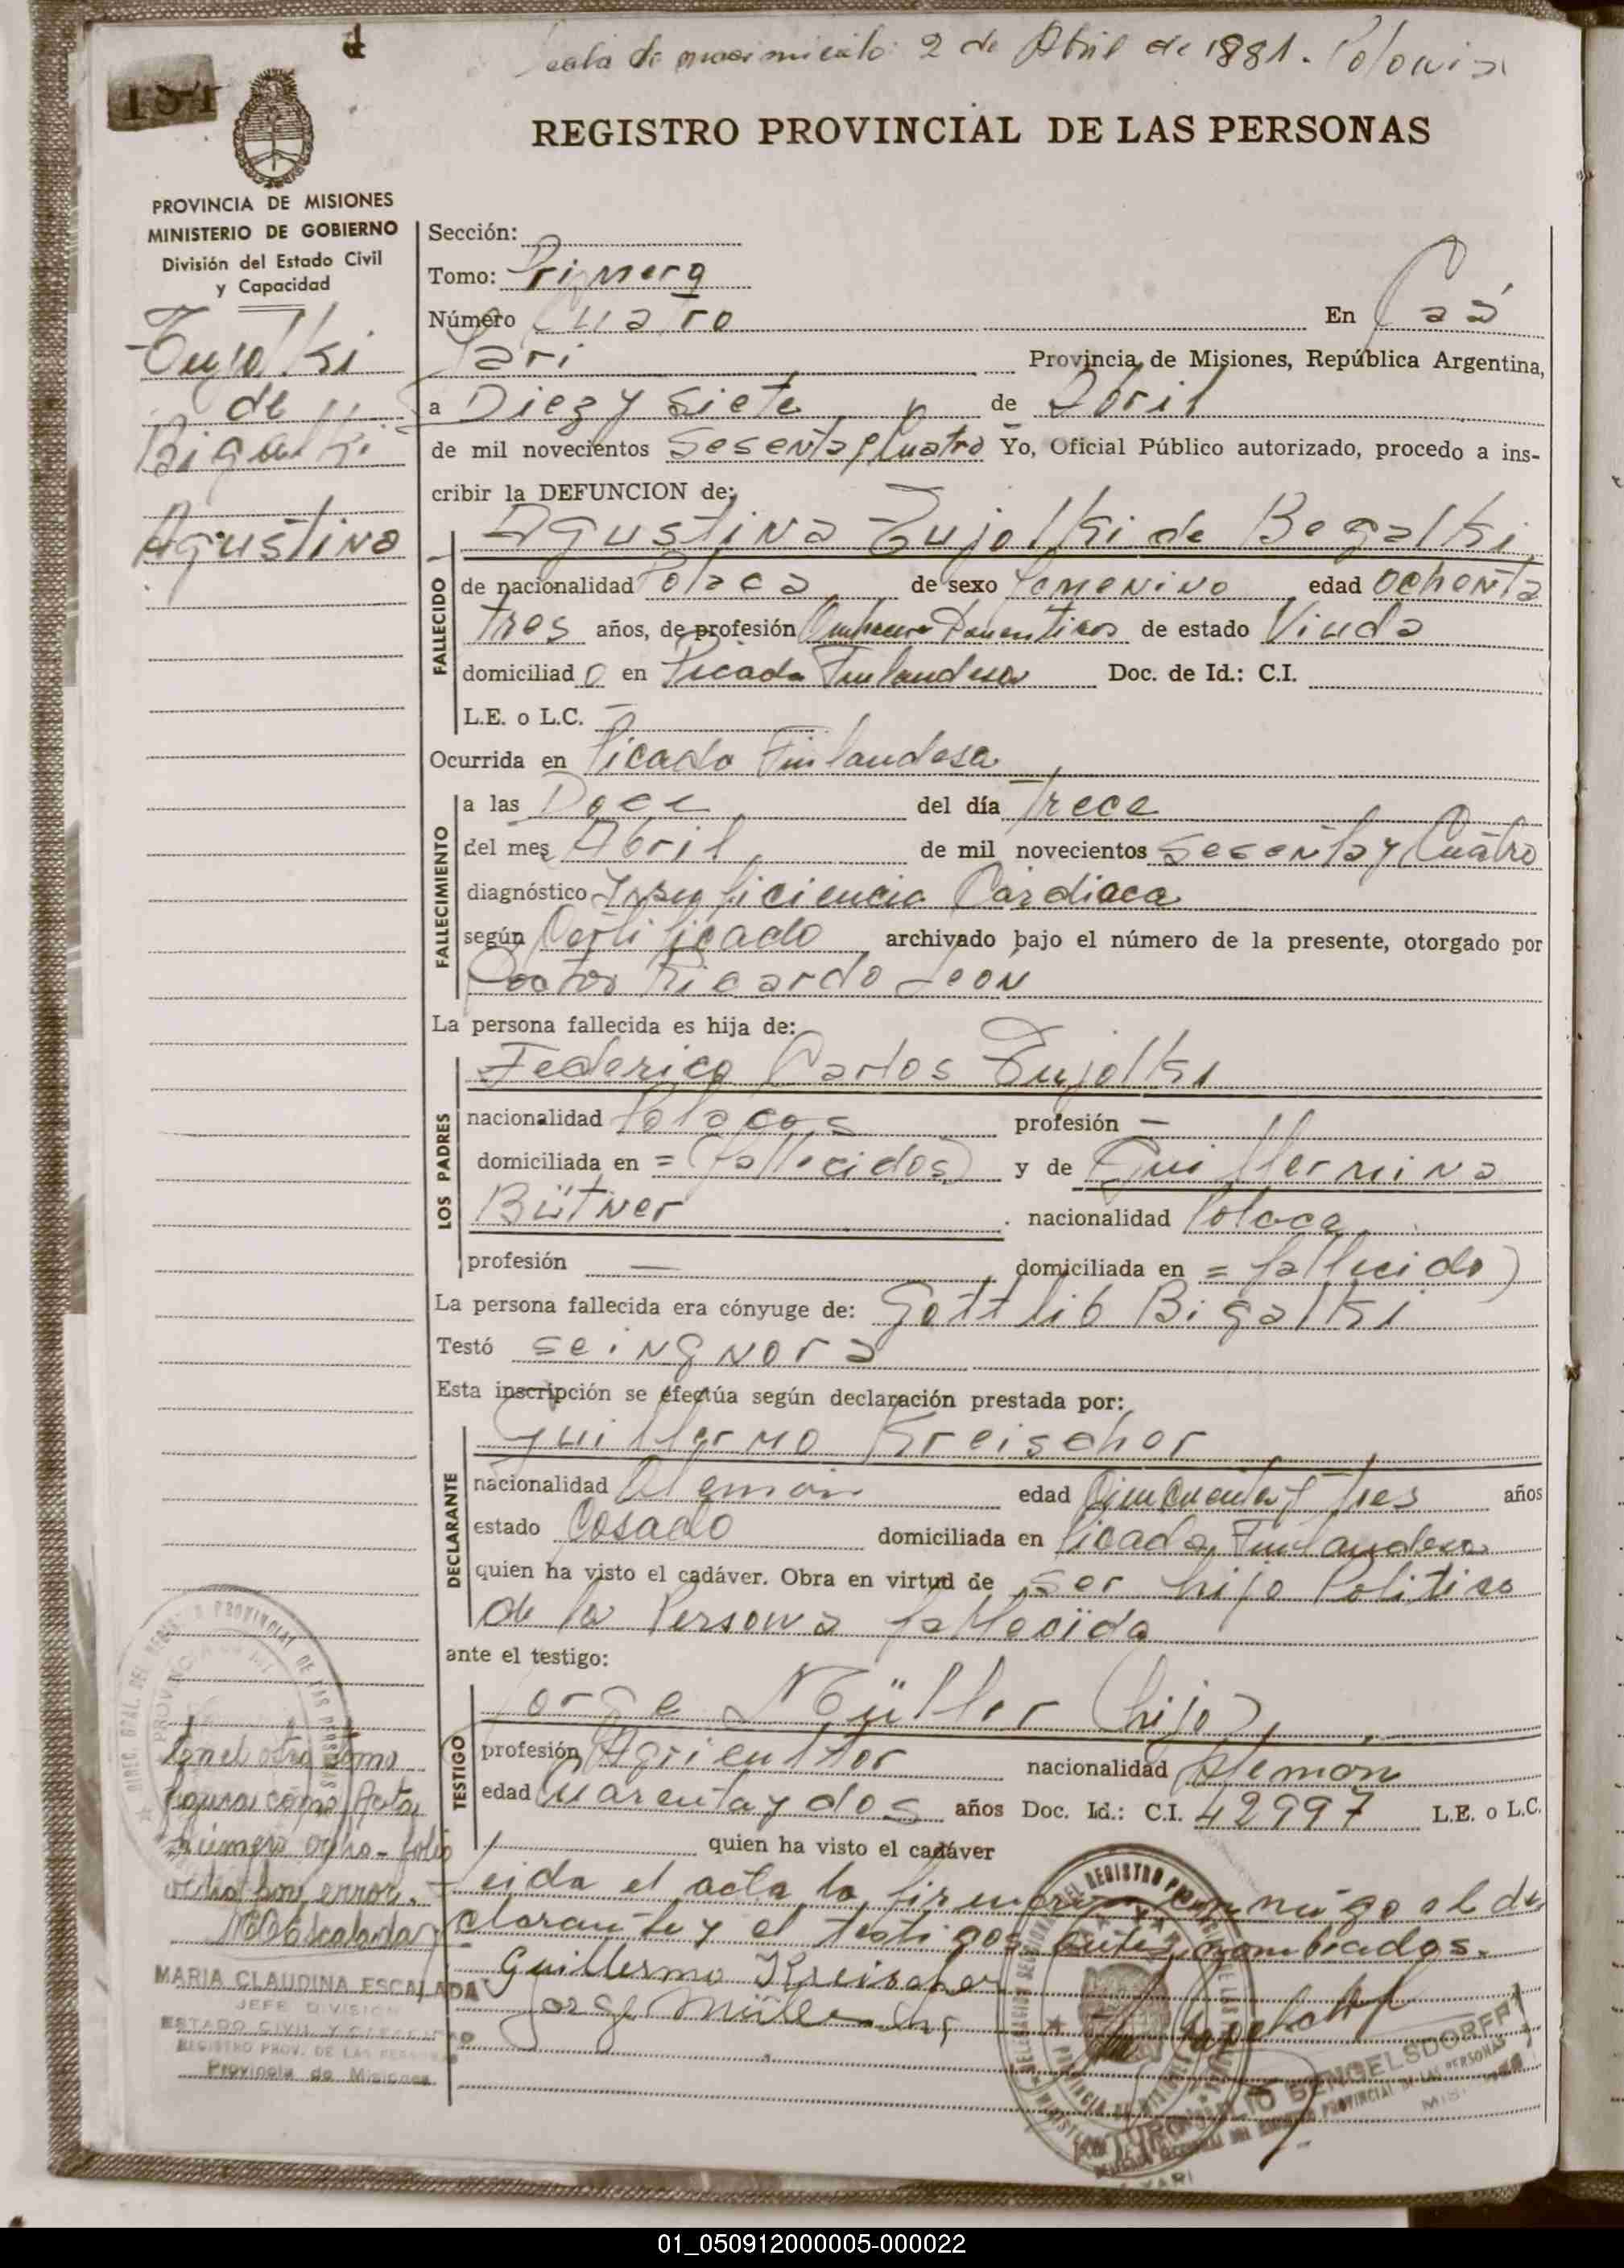 fecha de nacimiento: 2 de Abril de 1881. Polonia
REGISTRO PROVINCIAL DE LAS PERSONAS
PROVINCIA DE MISIONES
MINISTERIO DE GOBIERNO
División del Estado Civil
y Capacidad
de
Bigalki
Agustina
Sección:
Tomo: Primera
Número Cuatro En Caá
Yarí Provincia de Misiones, República Argentina,
a Diez y siete de Abril
de mil novecientos Sesenta y Cuatro Yo, Oficial Público autorizado, procedo a ins-
cribir la DEFUNCION de:
Agustina Zujolki de Begalki
FALLECIDO
de nacionalidad Polaca de sexo femenino edad ochenta
tres años, de profesión Domesticos de estado Viuda
domiciliad o en Picada Finlandesa Doc. de Id.: C.I.
L.E. o L.C. —
Ocurrida en Picada Finlandesa
FALLECIMIENTO
a las Doce del día Trece
del mes Abril de mil novecientos Sesenta y Cuatro
diagnóstico Insuficiencia Cardiaca
según Certificado archivado bajo el número de la presente, otorgado por
Doctor Ricardo Leon
La persona fallecida es hija de:
LOS PADRES
Federico Carlos Zujolki
nacionalidad Polacos profesión —
domiciliada en = (fallecidos) y de Guillermina
Bütner. nacionalidad Polaca
profesión — domiciliada en = fallecida)
La persona fallecida era cónyuge de: Gottlib Bigalki
Testó se ingnora
Esta inscripción se efectúa según declaración prestada por:
DECLARANTE
Guillermo Kreischer
nacionalidad Aleman edad Cincuenta y tres años
estado Casado domiciliada en Picada Finlandesa
quien ha visto el cadáver. Obra en virtud de ser hijo Politico
de la Persona fallecida
ante el testigo:
TESTIGO
Jorge Müller (hijo)
profesión Agricultor nacionalidad Aleman
edad Cuarenta y dos años Doc. Id.: C.I. 42997 L.E. o L.C.
quien ha visto el cadáver
Leida el acta la firmaron conmigo el de
clarante y el testigos antes nombrados.
Guillermo Kreischer
Jorge Müller
En el otro tomo
figura como Acta
número ocho - folio
ocho por error. -
MCEscalada
MARIA CLAUDINA ESCALADA
JEFE DIVISION
ESTADO CIVIL Y CAPACIDAD
REGISTRO PROV. DE LAS PERSONAS
Provincia de Misiones
01_050912000005-000022